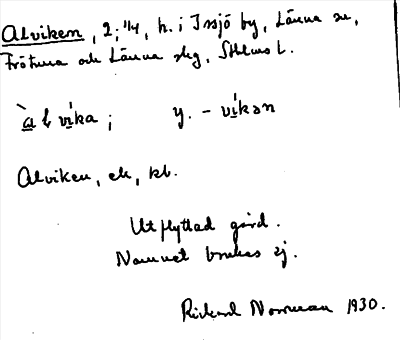 Alviken, 2; 1/4, h. i Issjö by, Länna sn,
Frötuna och Länna slg, Sthlms l.
àlvika; y. - vikən
Alviken, ek, kb.
Utflyttad gård.
Namnet brukas ej.
Rickard Norrman 1930.